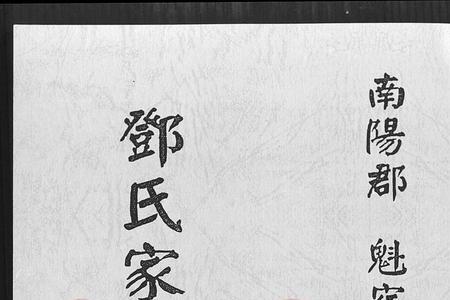 南陽郡 魁
鄧氏家